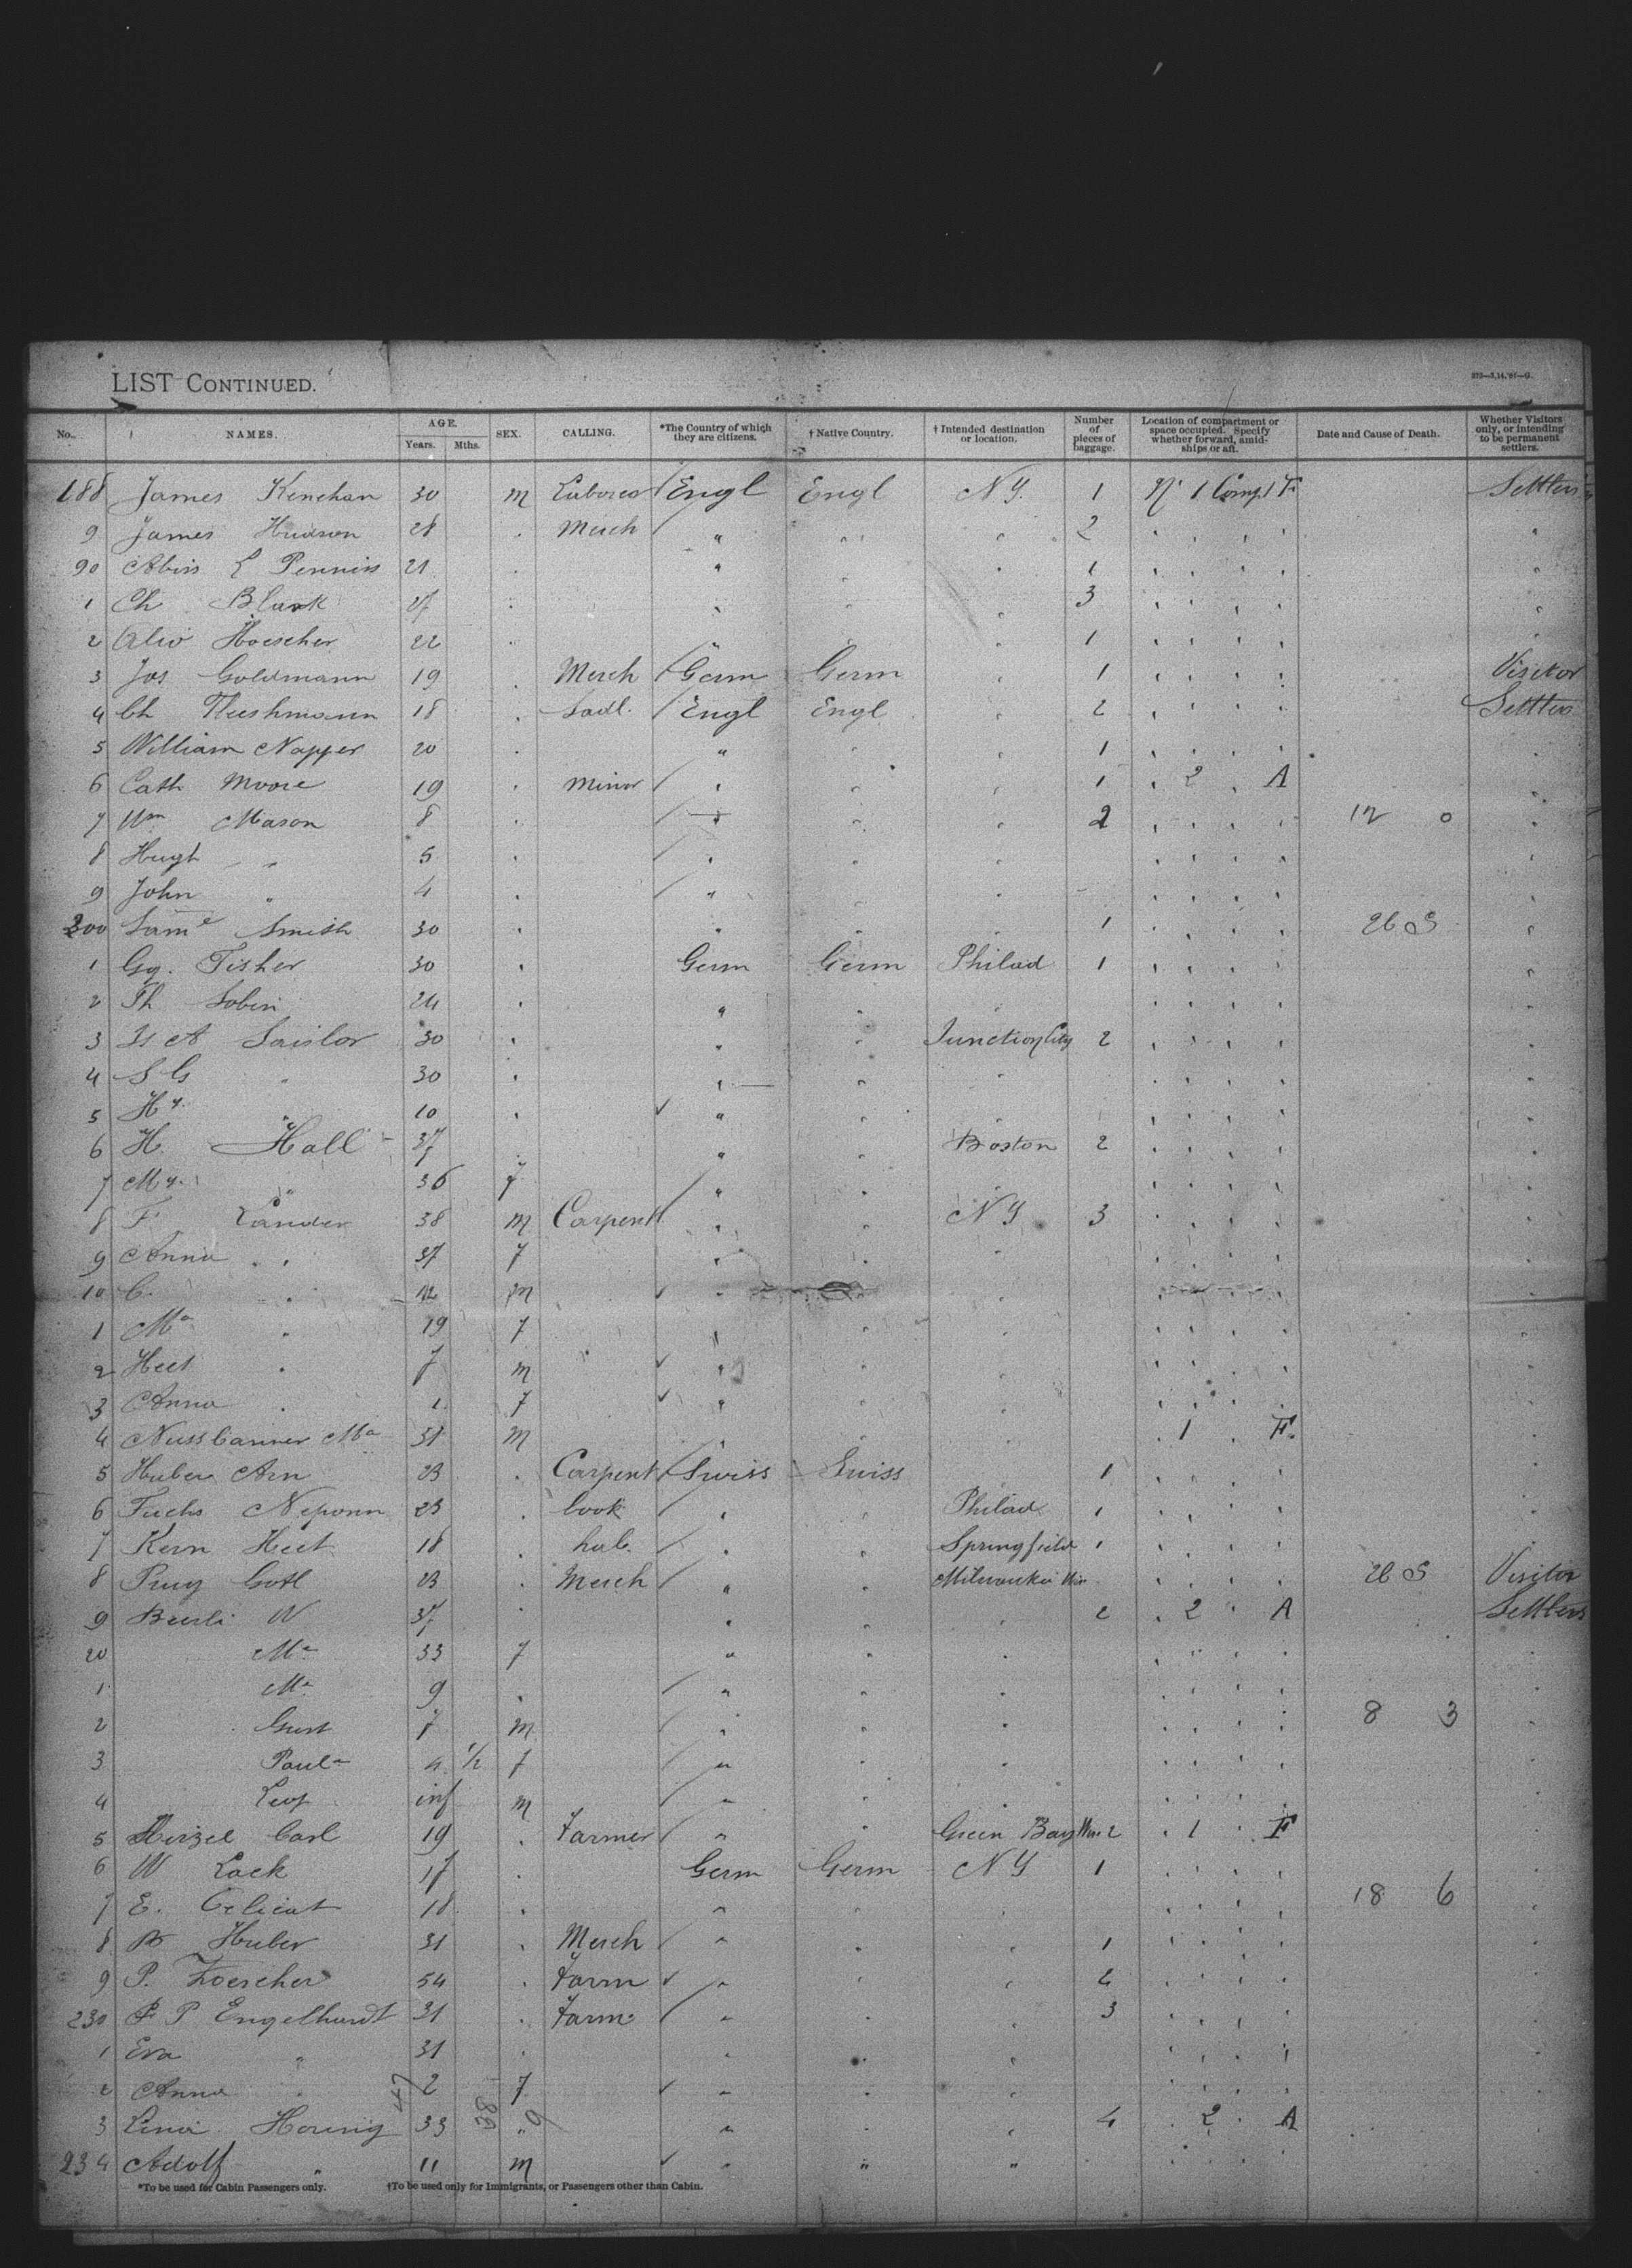 LIST CONTINUED.
No. NAMES. AGE. Years. Mths. SEX. CALLING. *The Country of which they are citizens. † Native Country. † Intended destination or location. Number of pieces of baggage. Location of compartment or space occupied. Specify whether forward, amidships or aft. Date and Cause of Death. Whether Visitors only, or intending to be permanent settlers.
188 James Kenehan 30 m Laborer Engl Engl N Y. 1 Settlers
9 James Hudson 28 . Merch " " " 2
90 21 . " 1
1 Ch Black 27 . " 3
2 Hoescher 22 . " 1
3 Jos Goldmann 19 . Merch Germ Germ " 1 Visitor
4 Ch 18 . Sadl. Engl Engl " 2 Settlers
5 William Napper 20 . " 1
6 Cath Moore 19 . Minor " 1 . 2 . A
7 Wm Mason 8 . " 2 12 0
8 Hugh " 5 . "
9 John " 4 . "
200 Saml Smith 30 . " 1 26
1 Gg. Fisher 30 . Germ Germ Philad 1
2 Th 24 . "
3 Sailor 30 . " Junction City 2
4 S G " 30 . "
5 Hy. " 10 . "
6 H. Hall 37 . " Boston 2
7 My. " 36 f "
8 F. Lander 38 m Carpent " N Y 3
9 Anna " 37 f "
10 C. " 12 m "
1 Ma " 19 f "
2 " 7 m "
3 Anna " 1 f "
4 Ma 31 m " . 1 . F.
5 Huber Arn 23 . Carpent Swiss Swiss 1
6 Fuchs 23 . Cook " Philad 1
7 Kern 18 . " Springfield 1
8 Gotl 23 . Merch " Milwaukee Wis 26 Visitor
9 W 37 . " 2 . 2 . A Settlers
20 Ma 33 f "
1 Ma 9 . "
2 Gust 7 m " 8 3
3 Paula 1/2 f "
4 Leop inf m "
5 Carl 19 . Farmer " Green Bay Wis 2 . 1 . F
6 W Lack 17 . Germ Germ N Y 1
7 E. 18 . " 18 6
8 Huber 31 . Merch " 1
9 P. 54 . Farm "
230 P Engelhardt 31 . Farm " 3
1 Eva " 31 . "
2 Anna " 2 f "
3 Lina Hornig 33 " " 4 . 2 . A
234 Adolf " 11 m " " "
*To be used for Cabin Passengers only. †To be used only for Immigrants, or Passengers other than Cabin.